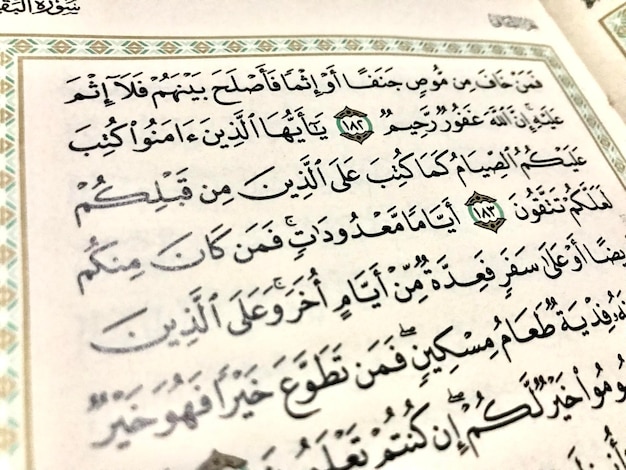 سورة البق
فَمَنْ خَافَ مِن مُّوصٍ جَنَفًا أَوْ إِثْمًا فَأَصْلَحَ بَيْنَهُمْ فَلَآ إِثْمَ
عَلَيْهِ ۚ إِنَّ ٱللَّهَ غَفُورٌ رَّحِيمٌ ١٨٢ يَٰٓأَيُّهَا ٱلَّذِينَ ءَامَنُوا۟ كُتِبَ
عَلَيْكُمُ ٱلصِّيَامُ كَمَا كُتِبَ عَلَى ٱلَّذِينَ مِن قَبْلِكُمْ
لَعَلَّكُمْ تَتَّقُونَ ١٨٣ أَيَّامًا مَّعْدُودَٰتٍ ۚ فَمَن كَانَ مِنكُم
يضًا أَوْ عَلَىٰ سَفَرٍ فَعِدَّةٌ مِّنْ أَيَّامٍ أُخَرَ ۚ وَعَلَى ٱلَّذِينَ
نَهُۥ فِدْيَةٌ طَعَامُ مِسْكِينٍ ۖ فَمَن تَطَوَّعَ خَيْرًا فَهُوَ خَيْرٌ
ومُوا۟ خَيْرٌ لَّكُمْ ۖ إِن كُنتُمْ تَعْلَمُ